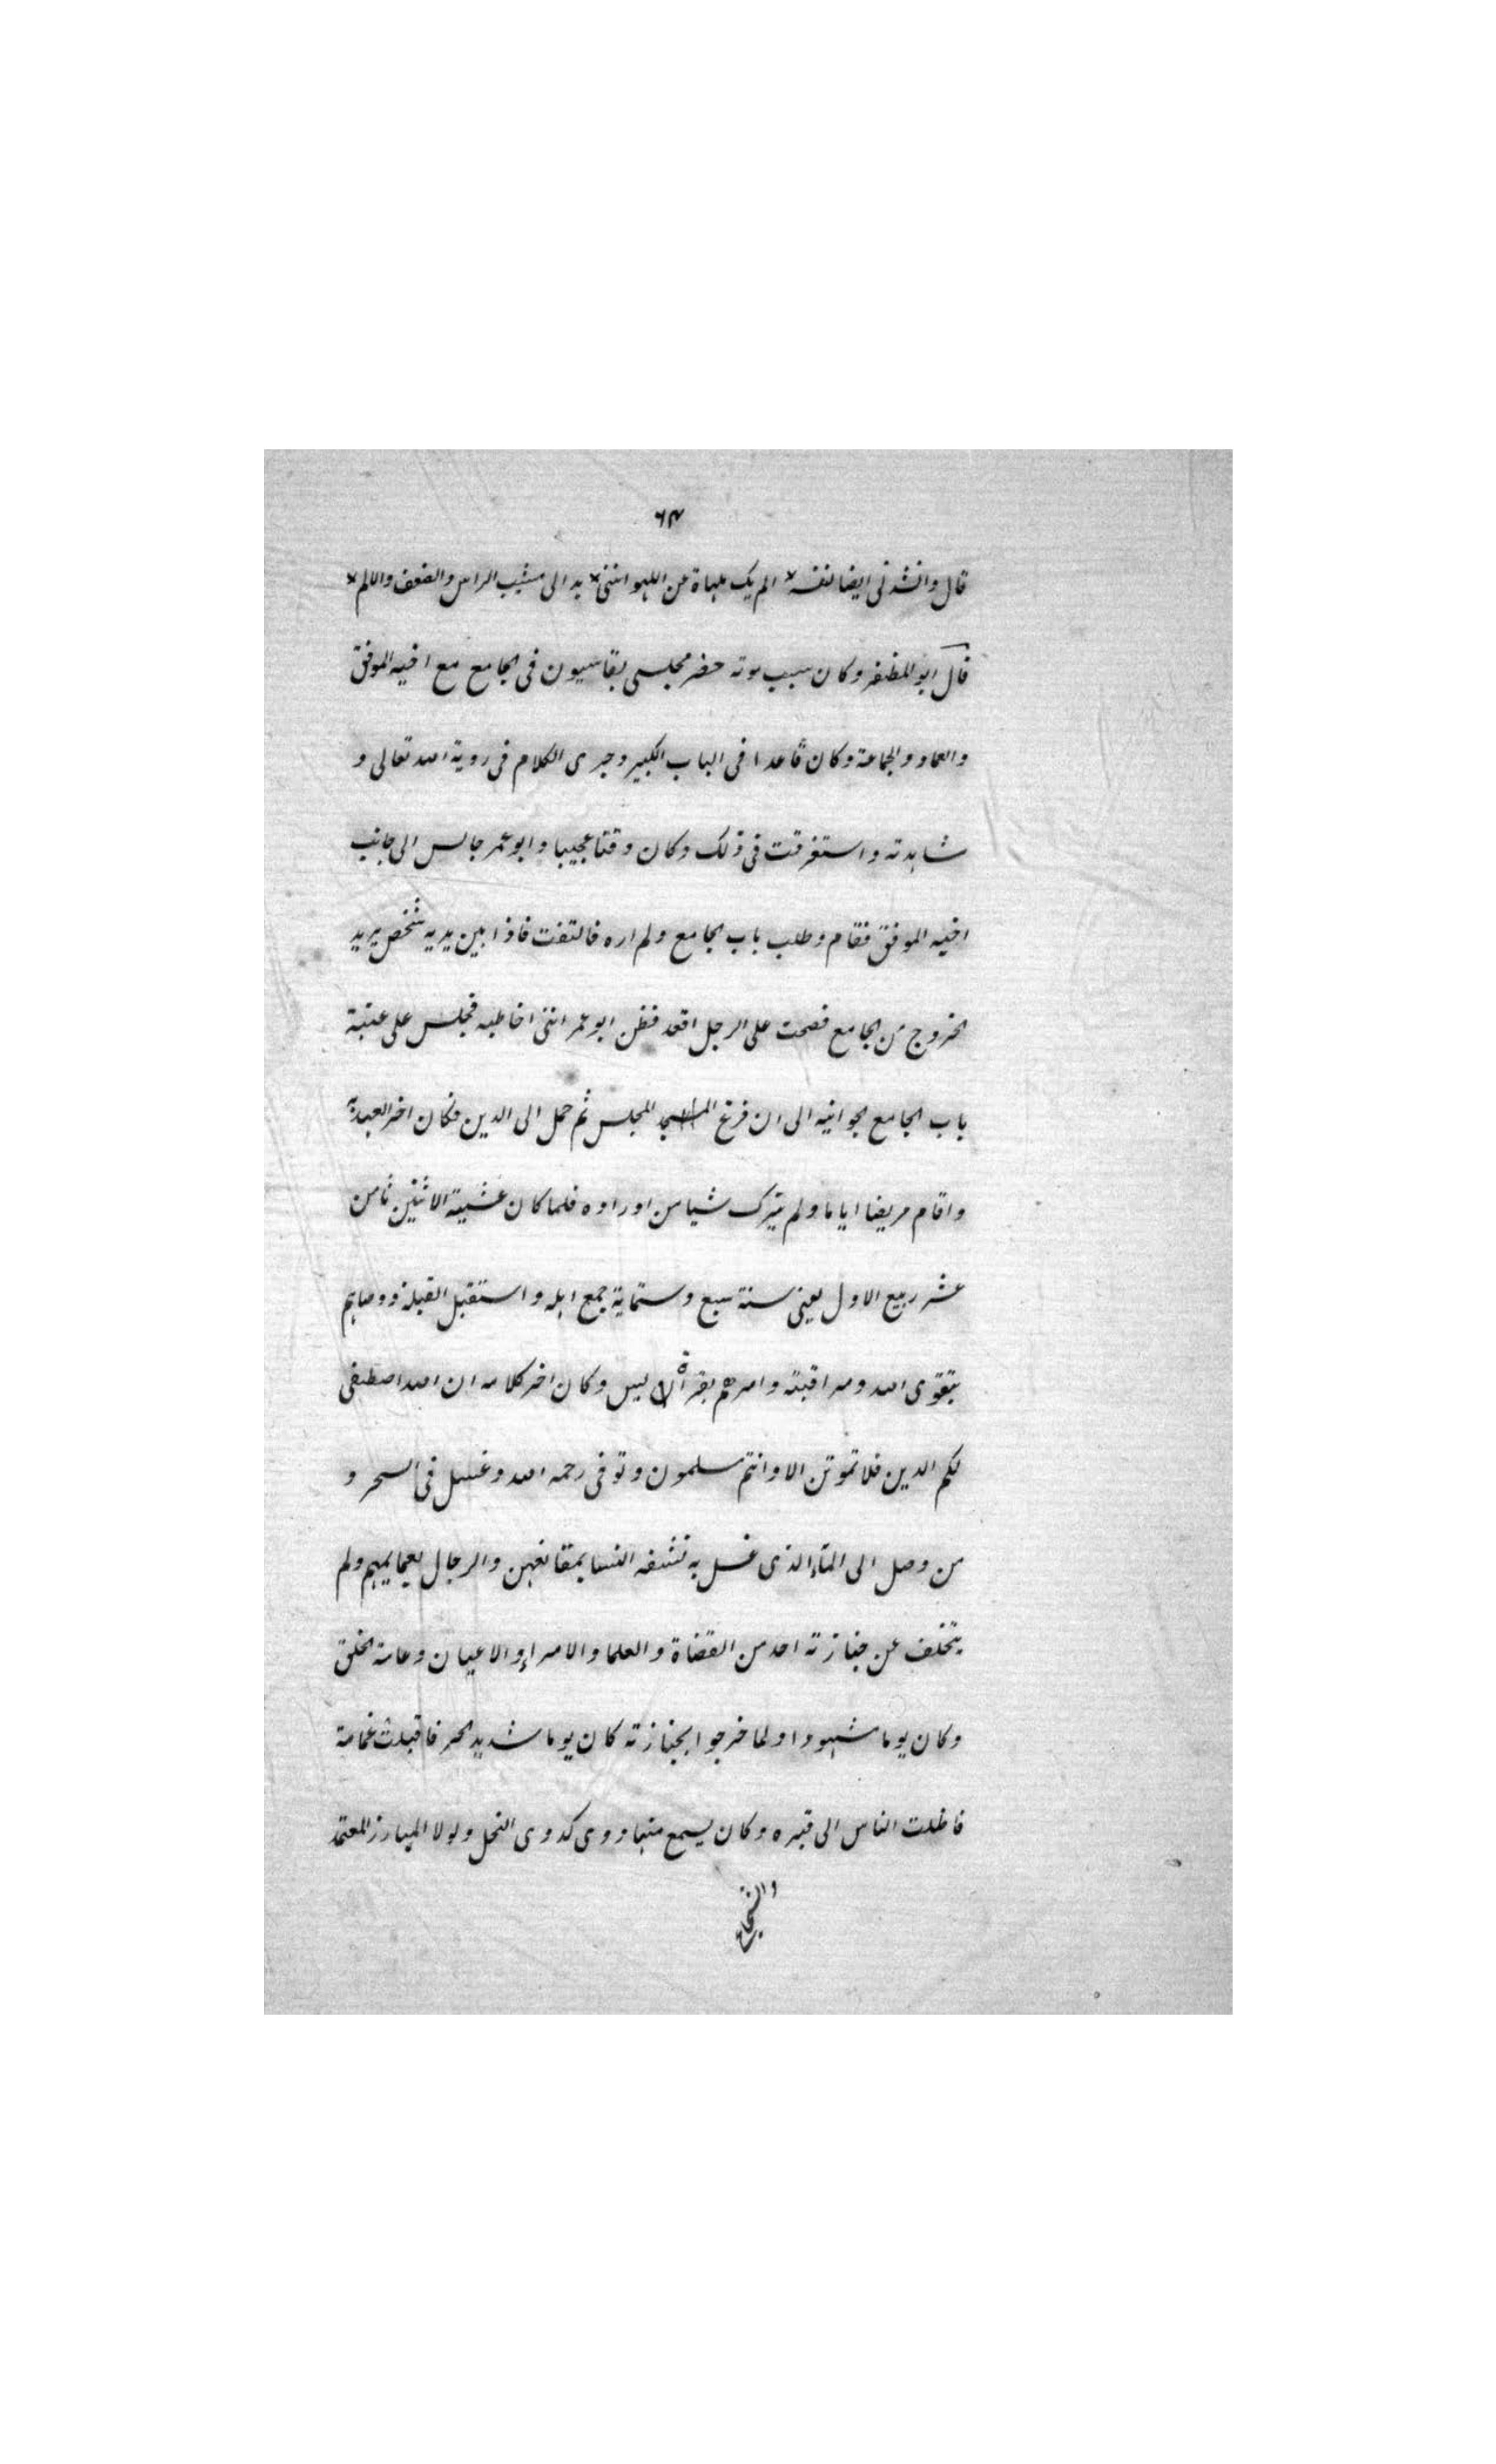 ٦٣
قال وانشدنى ايضا لنفسه * الم يك ملهاة عن اللهو اننى * بدا لى مشيب الراس والضعف والالم *
قال ابو المظفر وكان سبب موته حضر مجلسى بقاسيون فى الجامع مع اخيه الموفق
والعماد والجماعة وكان قاعدا فى الباب الكبير وجرى الكلام فى روية الله تعالى و
شاهدته واستغرقت فى ذلك وكان وقتا عجيبا وابو عمر جالس الى جانب
اخيه الموفق فقام وطلب باب الجامع ولم اره فالتفت فاذا بين يديه شخص يريد
الخروج من الجامع فصحت على الرجل اقعد فظن ابو عمر اننى اخاطبه فجلس على عتبة
باب الجامع الجوانيه الى ان فرغ المجلس ثم حمل الى الدين فكان اخر العهد به
واقام مريضا اياما ولم يترك شيا من اوراده فلما كان عشية الاثنين ثامن
عشر ربيع الاول يعنى سنة سبع وستماية جمع اهله واستقبل القبلة ووصاهم
بتقوى الله ومراقبته وامرهم بقراة يس وكان اخر كلامه ان الله اصطفى
لكم الدين فلا تموتن الا وانتم مسلمون وتوفى رحمه الله وغسل فى السحر و
من وصل الى الماء الذى غسل به نشفه النسا بمقانعهن والرجال بعمايمهم ولم
يتخلف عن جنازته احد من القضاة والعلما والامراء والاعيان وعامة الخلق
وكان يوما مشهودا ولما خرجوا بجنازته كان يوما شديد الحر فاقبلت غمامة
فاظلت الناس الى قبره وكان يسمع منها دوى كدوى النحل ولولا المبارز المعتمد